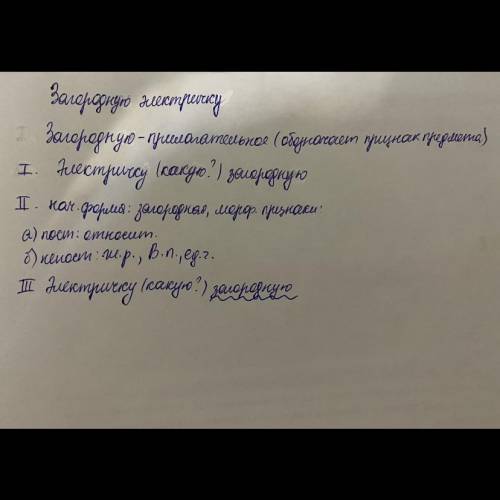 Загородную электричку
I Загородную - прилагательное (обозначает признак предмета)
I. Электричку (какую?) загородную
II. нач. форма: загородная, морф. признаки:
а) пост: относит.
б) непост: ж.р., В.п., ед.ч.
III Электричку (какую?) загородную